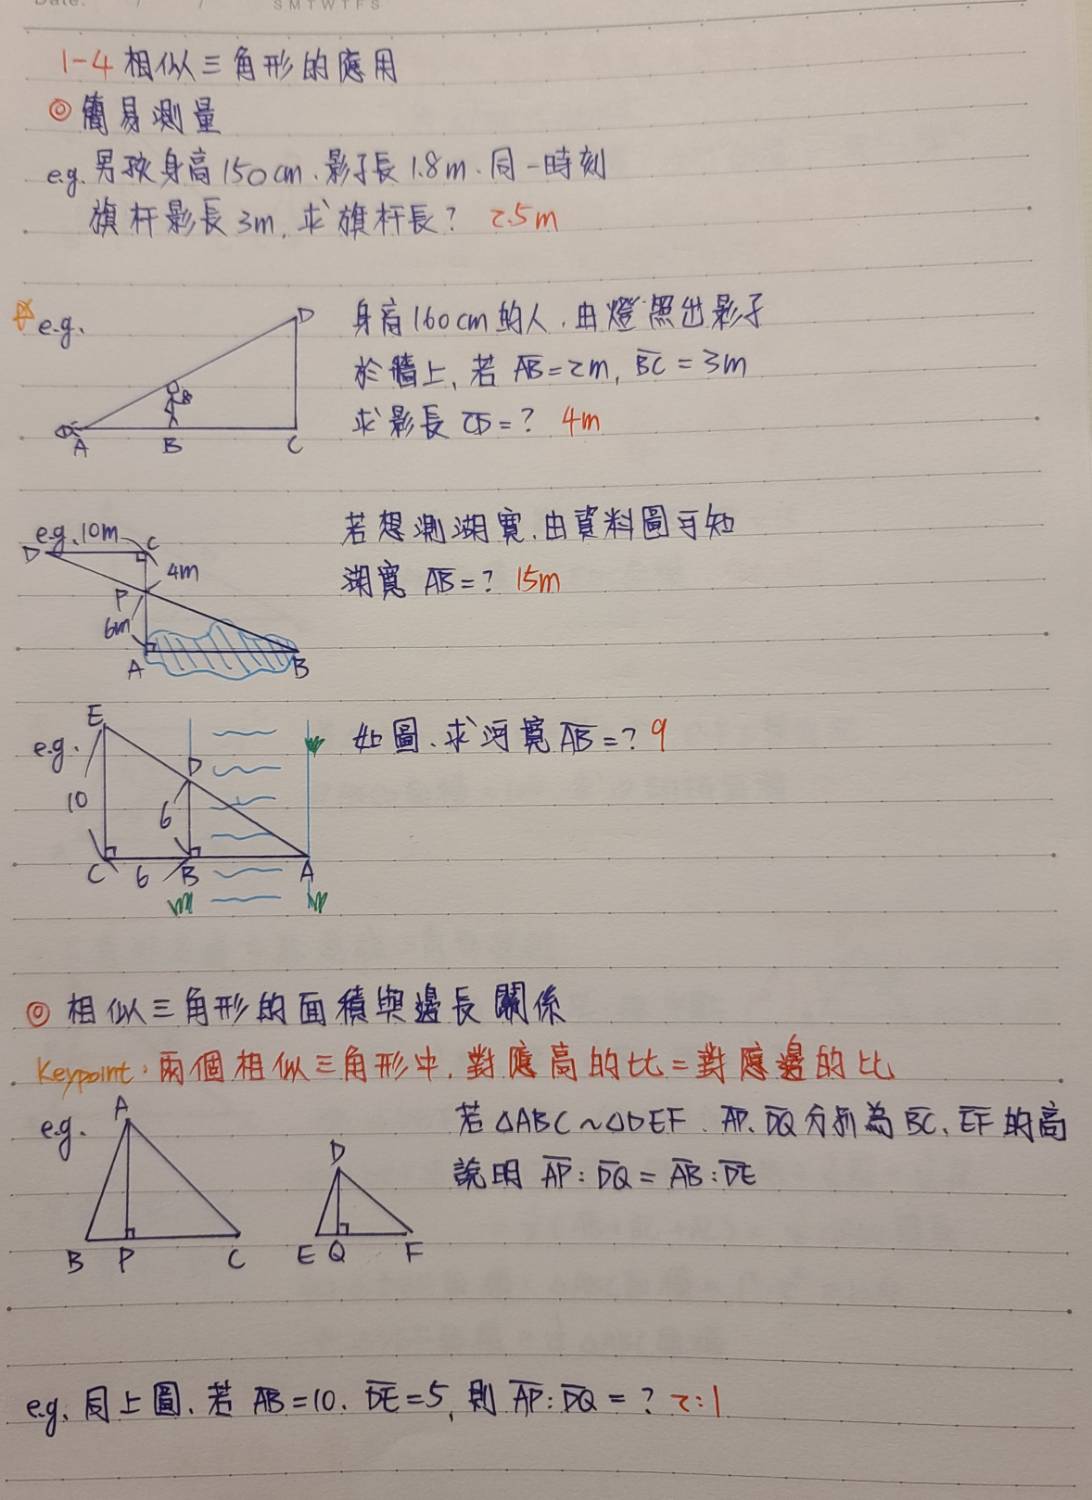 Date: / /
S M T W T F S
1-4 相似三角形的應用
◎簡易測量
e.g. 男孩身高150cm、影子長1.8m、同一時刻
旗杆影長3m、求旗杆長？ 2.5m
☆e.g.
D
A B C
身高160cm的人、由燈照出影子
於牆上、若 AB=2m, BC=3m
求影長 CD=? 4m
e.g. 10m
D C
4m
P
6m
A B
若想測湖寬、由資料圖可知
湖寬 AB=? 15m
e.g.
E
D
10
6
C 6 B A
如圖、求河寬AB=? 9
◎ 相似三角形的面積與邊長關係
Keypoint：兩個相似三角形中、對應高的比=對應邊的比
e.g.
A
B P C
D
E Q F
若△ABC~△DEF、AP、DQ分別為BC、EF的高
說明 AP:DQ=AB:DE
e.g. 同上圖、若 AB=10、DE=5, 則 AP:DQ=? 2:1